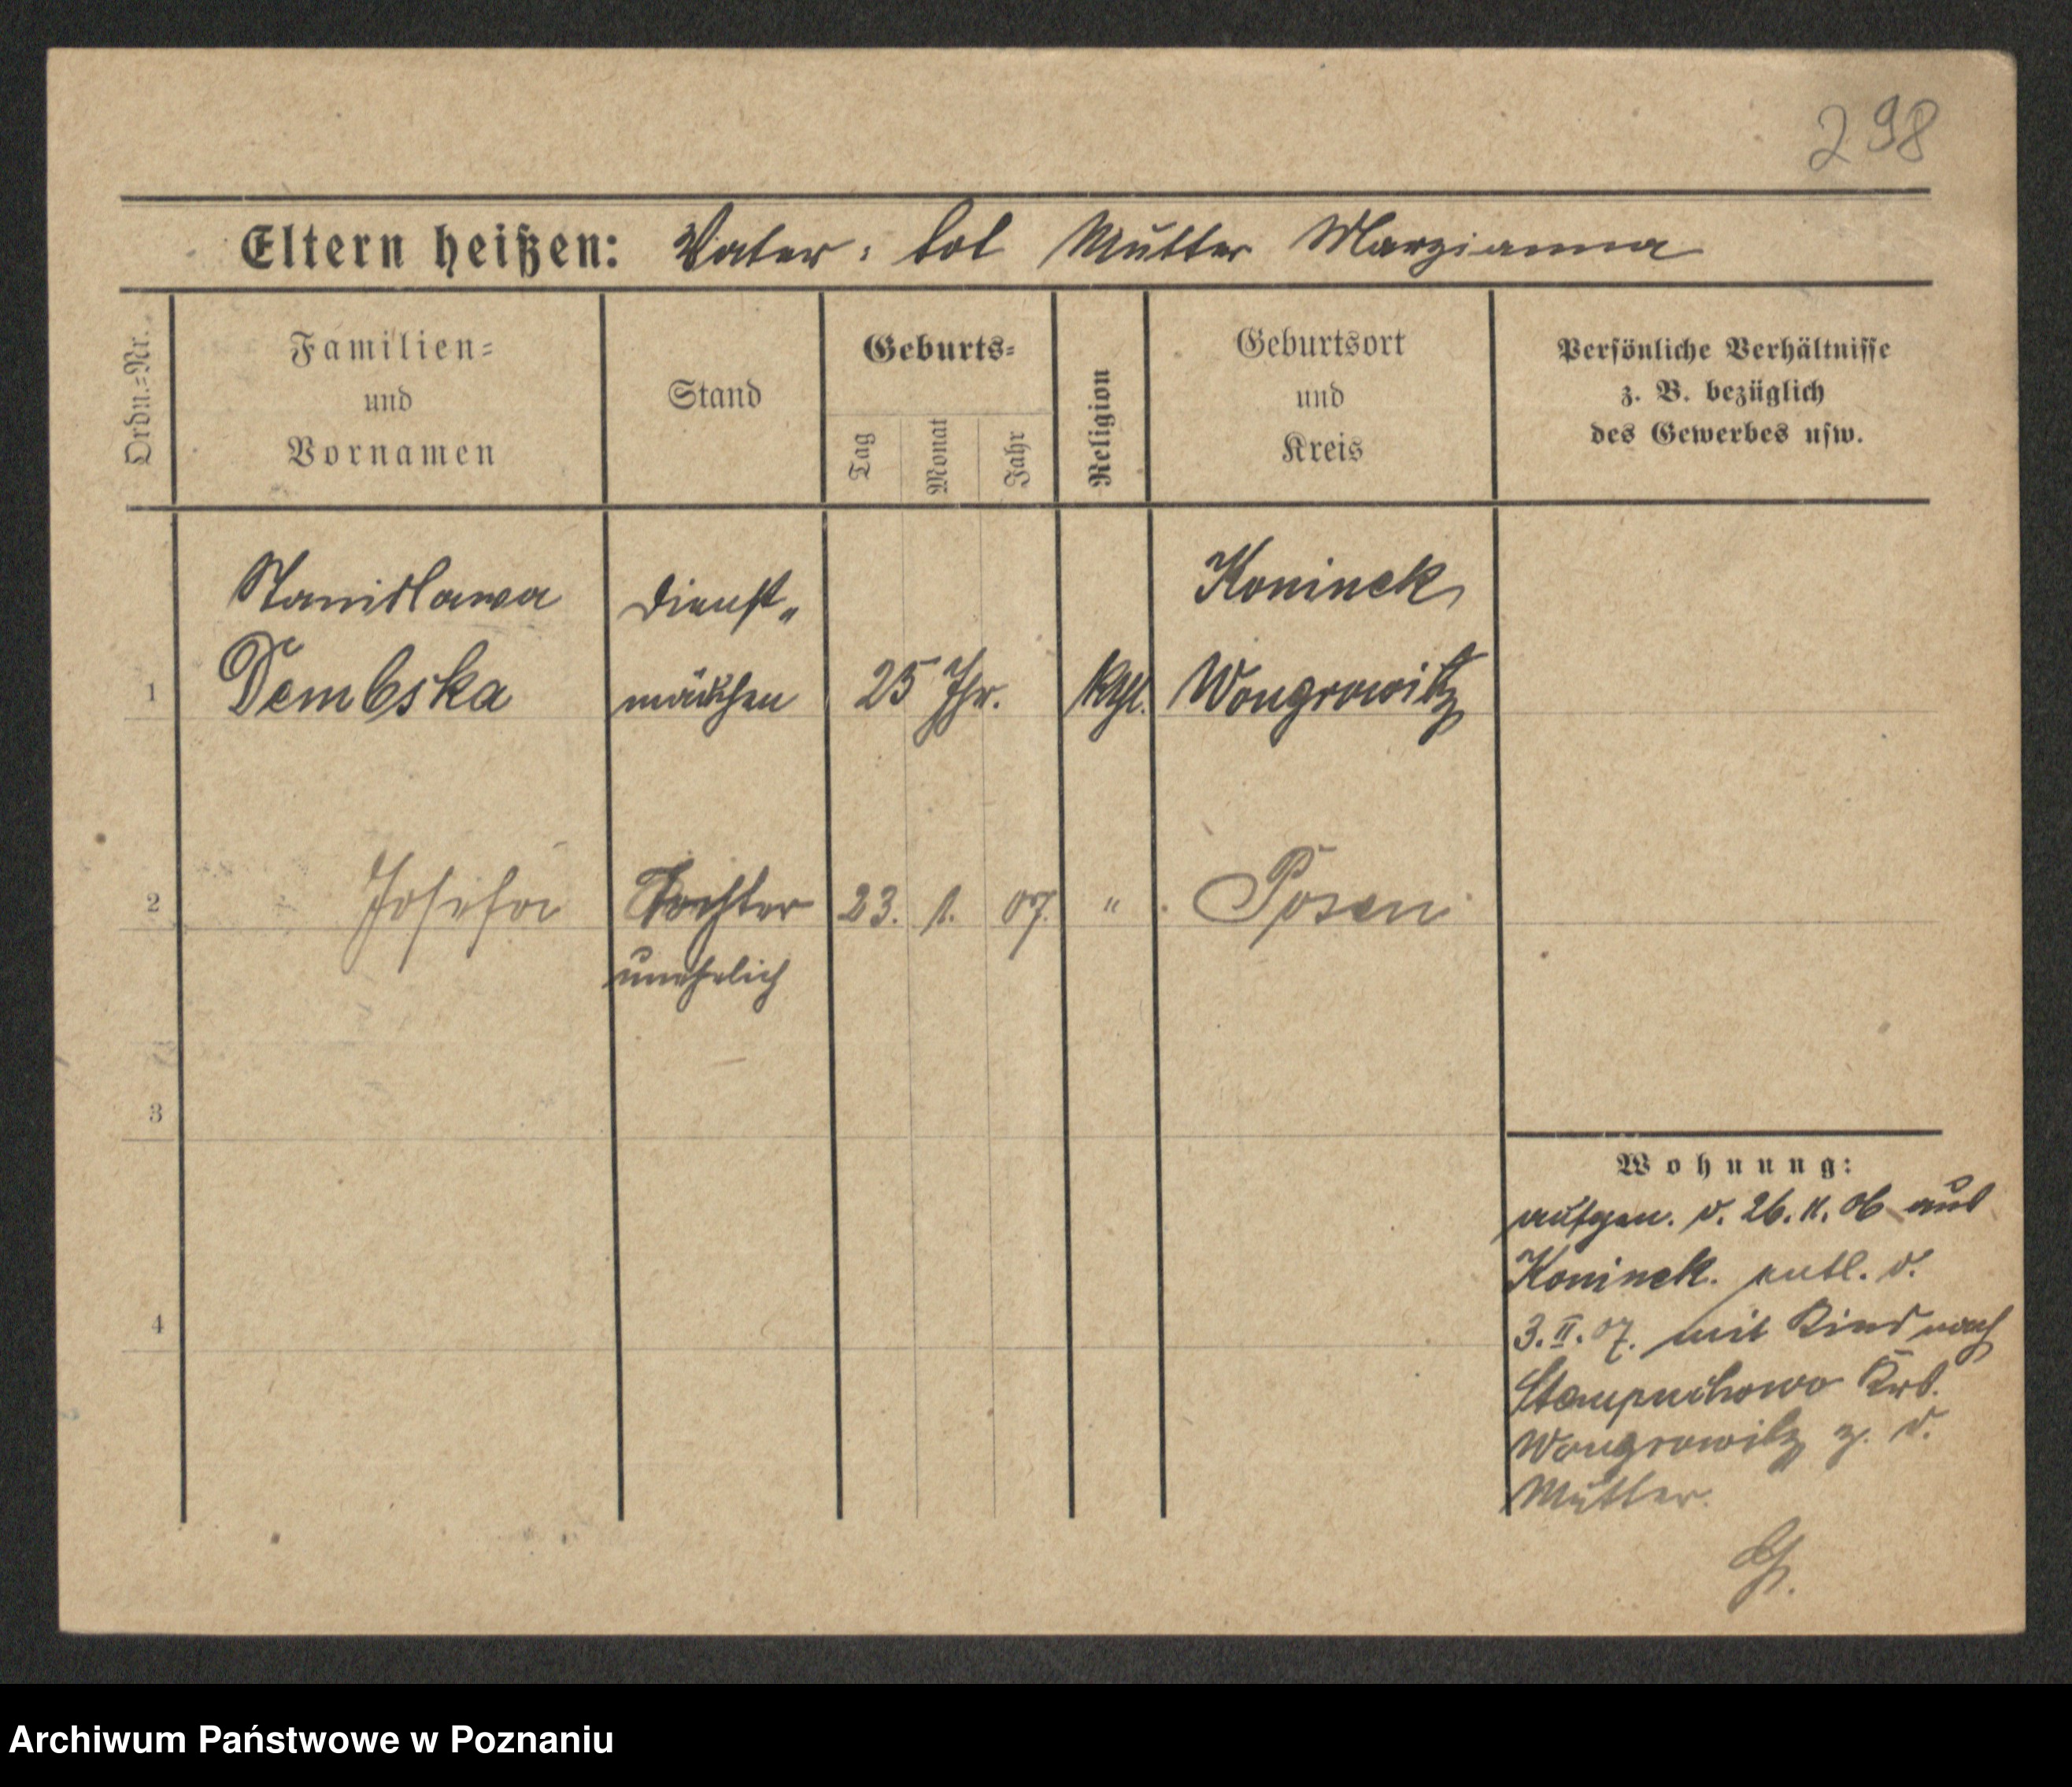 298
Eltern heißen: Vater: tot Mutter Marzianna
Ordn.=Nr.
Familien=
und
Vornamen
Stand
Geburts=
Tag
Monat
Jahr
Religion
Geburtsort
und
Kreis
Persönliche Verhältnisse
z. B. bezüglich
des Gewerbes usw.
Stanislawa Dienst„ Koninek
1 Dembska mädchen 25 Jhr. kthl. Wongrowitz
2 Josefa Tochter 23. 1. 07. " Posen
unehelich
3
4
Wohnung:
aufgen. d. 26.11.06 aus
Koninek. entl. d.
3.II.07. mit Kind nach
Stempuchowo Krs.
Wongrowitz z. d.
Mutter.
Archiwum Państwowe w Poznaniu